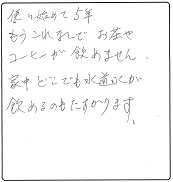 使い始めて5年、
もうこれなしで お茶や
コーヒーが飲めません。
家中どこでも水道水が
飲めるのもたすかります。